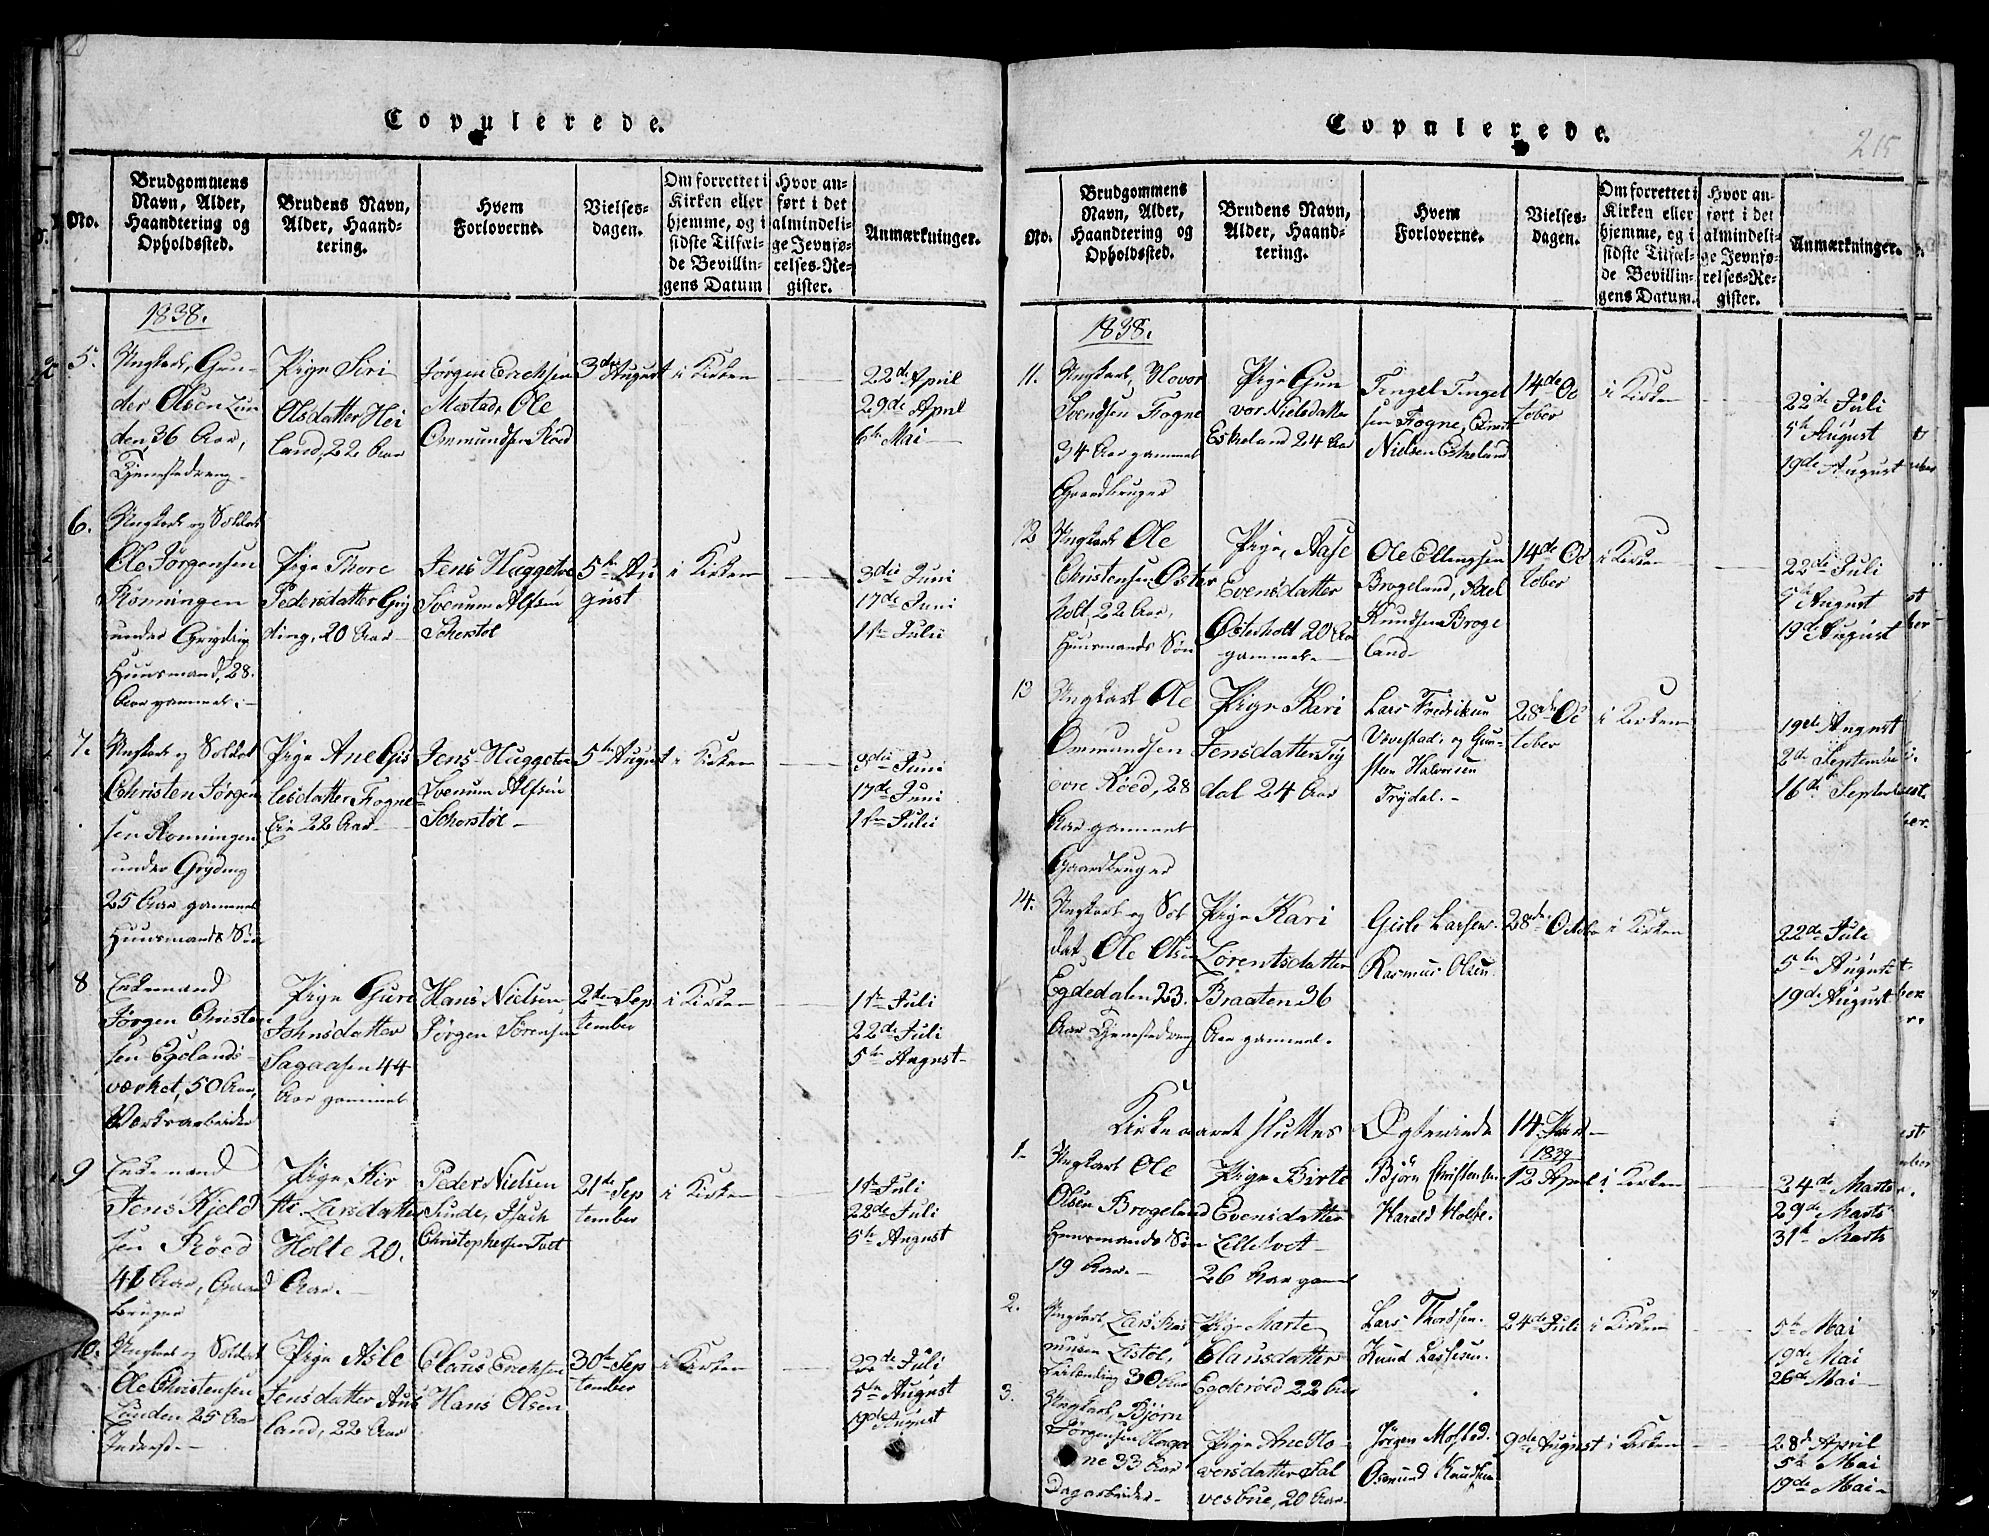 Copulerede.
No.
Brudgommens
Navn, Alder,
Haandtering og
Opholdssted.
Brudens Navn,
Alder, Haand-
tering.
Hvem
Forloverne.
Vielses-
dagen.
Om forrettet i
Kirken eller
hjemme, og i
sidste Tilfæl-
de Bevillin-
gens Datum
Hvor an-
ført i det
almindeli-
ge Jevnfø-
relses-Re-
gister.
Anmærkninger.
1838.
5.
Ungkarl, Gun-
der Olsen Lun
den, 36 Aar,
Tjenestedreng
Pige Siri
Olsdatter Hei
land, 22 Aar
Jørgen Erichsen
Mostad, Ole
Ommundsen Røed
3die August
i Kirken
22de April
29de April
6te Mai
6.
Ungkarl og Soldat
Ole Jørgensen
Rønningen
under Gryding
Huusmand, 28.
Aar gammel
Pige Thore
Pedersdatter Gry
ding, 20 Aar
Jens Huggetve
Svenum Alfsen
Schorstøl
5te Au
gust
i Kirken
3die Juni
17de Juni
1ste Julii
7.
Ungkarl og Soldat
Christen Jørgen
sen Rønningen
under Gryding
25 Aar gammel
Huusmands Søn
Pige Ane Gis
lesdatter Fogne
Eie 22 Aar
Jens Huggetve
Svenum Alfsen
Schorstøl
5te August
i Kirken
3die Juni
17de Juni
1ste Julii
8
Enkemand
Jørgen Christen
sen Egelands
værket, 50 Aar,
Værksarbeider
Pige Guri
Johnsdatter
Sagaasen 44
Aar gammel
Hans Nielsen
Jørgen Sørensen
2den Sep
tember
i Kirken
1ste Juli
22de Juli
5te August
9
Enkemand
Jens Kjeld
sen Røed
41 Aar, Gaard
bruger
Pige Kir
sti Larsdatter
Holte 20.
Aar.
Peder Nielsen
Sunde, Isach
Christophersen Toft
21de Sep
tember
i Kirken
1ste Juli
22de Juli
5te August
10.
Ungkarl og Soldat
Ole Christensen
Lunden 25 Aar
Inderst
Pige Asle
Jensdatter Aus
land, 22 Aar
Claus Erichsen
Hans Olsen
30te Sep
tember
i Kirken
22de Juli
5te August
19de August
Copulerede.
215
No.
Brudgommens
Navn, Alder,
Haandtering og
Opholdssted.
Brudens Navn,
Alder, Haand-
tering.
Hvem
Forloverne.
Vielses-
dagen.
Om forrettet i
Kirken eller
hjemme, og i
sidste Tilfæl-
de Bevillin-
gens Datum.
Hvor an-
ført i det
almindeli-
ge Jevnfø-
relses-Re-
gister.
Anmærkninger.
1838.
11.
Ungkarl, Hovor
Svendsen Fogne
34 Aar gammel
Gaardbruger
Pige Gun
vor Nielsdatter
Eskeland 24 Aar
Tengel Tengel
sen Fogne,
Nielsen Eskeland
14de Oc
tober
i Kirken
22de Juli
5te August
19de August
12
Ungkarl Ole
Christensen Øster
holt, 22 Aar,
Huusmands Søn
Pige, Aase
Evensdatter
Østerholt 20 Aar
gammel
Ole Ellingsen
Brogeland, Axel
Knudsen Broge
land
14de Oc
tober
i Kirken
22de Juli
5te August
19de August
13
Ungkarl Ole
Ommundsen
øvre Røed, 28
Aar gammel
Gaardbruger
Pige Kari
Jensdatter Try
dal 24 Aar
Lars Fredriksen
Vovestad, og Gun-
sten Halvorsen
Trydal.
28de Oc
tober
i Kirken
19de August
2de September
16de September
14.
Ungkarl og Sol
dat, Ole Olsen
Egdedalen 23.
Aar Tjenestedreng
Pige Kari
Lorentsdatter
Braaten 36
Aar gammel.
Gisle Larsen.
Rasmus Olsen.
28de October
i Kirken
22de Juli
5te August
19de August
Kirkeaaret sluttes
Ægteviede 14 Par
1839
1.
Ungkarl Ole
Olsen Brogeland
Huusmands Søn
19 Aar.
Pige Birte
Evensdatter
Lilletvet
26 Aar gammel
Bjørn Christensen
Harald Holte.
12 April
i Kirken
24de Marts
29de Marts
31te Marts
2.
Ungkarl, Lars Ras
musen Listøl,
30 Aar
Pige Marte
Clausdatter
Egderøed 22 Aar
Lars Thordsen.
Knud Lassesen.
24de Juli
i Kirken
5te Mai
19de Mai
26de Mai
3.
Ungkarl, Bjørn
Jørgensen
33 Aar
Dagarbeider
Pige Ane Ho-
vorsdatter Sal
vesbue, 20 Aar
Jørgen Mosted.
Osmund Knudsen
9de August
i Kirken
28de April
5te Mai
19de Mai